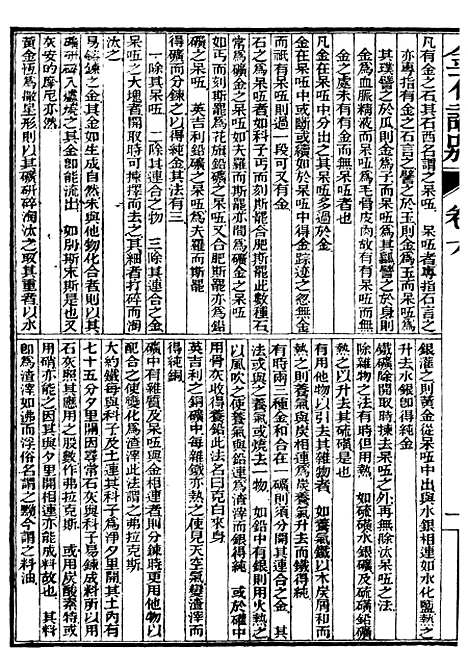 凡有金之石其在西名謂之呆㕶　呆㕶者專指石言之
亦專指有金之石言之譬之於玉則金爲玉而呆㕶爲
其璞譬之於瓜則金爲子而呆㕶爲其瓤譬之於身則
金爲血脈精液而呆㕶爲毛骨皮肉故有有呆㕶而無
金之處未有有金而無呆㕶者也
凡金在呆㕶中分出之呆㕶多過於金
金在呆㕶中或斷或續如於呆㕶中得金踪迹之忽無金
而祇有呆㕶則過一段可又有金
石之爲呆㕶者如科子丐而刻斯罷又合肥斯罷此數種石
常爲礦金之呆㕶如夫羅而斯罷亦間爲礦金之呆㕶
如丐而刻斯罷爲花旗鉛礦之呆㕶合肥斯罷亦爲鉛
礦之呆㕶　英吉利鉛礦之呆㕶爲夫羅而斯罷
得礦而分鍊之以得純金其法有三
一除其呆㕶　二除其連合之物　三除其連合之金
呆㕶之大塊者開取時可揀擇而去之其細者打碎而淘
汰之
易鎔鍊之金其金如生成自然未與他物化合者則以其
礦研碎入爐燒之其金卽能流出　如別斯末斯是也又
灰安的摩尼亦然
黃金恆爲撒星形則以其礦研碎淘汰之取其重者以水
銀灌之則黃金從呆㕶中出與水銀相連如水化鹽熱之
升去水銀卽得純金
鐵礦除開取時揀去呆㕶之外再無除汰呆㕶之法
除雜物之法有時但用熱　如硫磺水銀礦及硫磺鉛礦
熱之以升去其硫磺是也
有用他物以引去其雜物者　如養氣鐵以木炭屑和而
熱之則養氣與炭相連爲炭養氣升去而鐵得純
有時兩二種金和合在一礦則須分開其連合之金　其
法或與之養氣或燒去一物　如鉛中有銀則用火熱之
以風吹之使養氣與鉛連爲渣滓而銀得純　或於礶中
用骨灰收得養鉛此法名曰克白來爾
英吉利之銅礦中每雜鐵亦熱之使見天空氣變渣滓而
得純銅
礦中有雜質及呆㕶與金相連者則分鍊時更用他物以
配合之使變化爲渣滓此法謂之弗拉克斯
大約鐵每與科子及土連其科子爲淨夕里開其土內有
七十五分夕里開因尋常石灰與科子易鎔成料所以用
石灰照其應用之股數作弗拉克斯　或用炭酸素特或
用硝亦能之因其與夕里開相連亦能成料故也　其料
卽爲渣滓如沸而浮俗名謂之黝今謂之料油